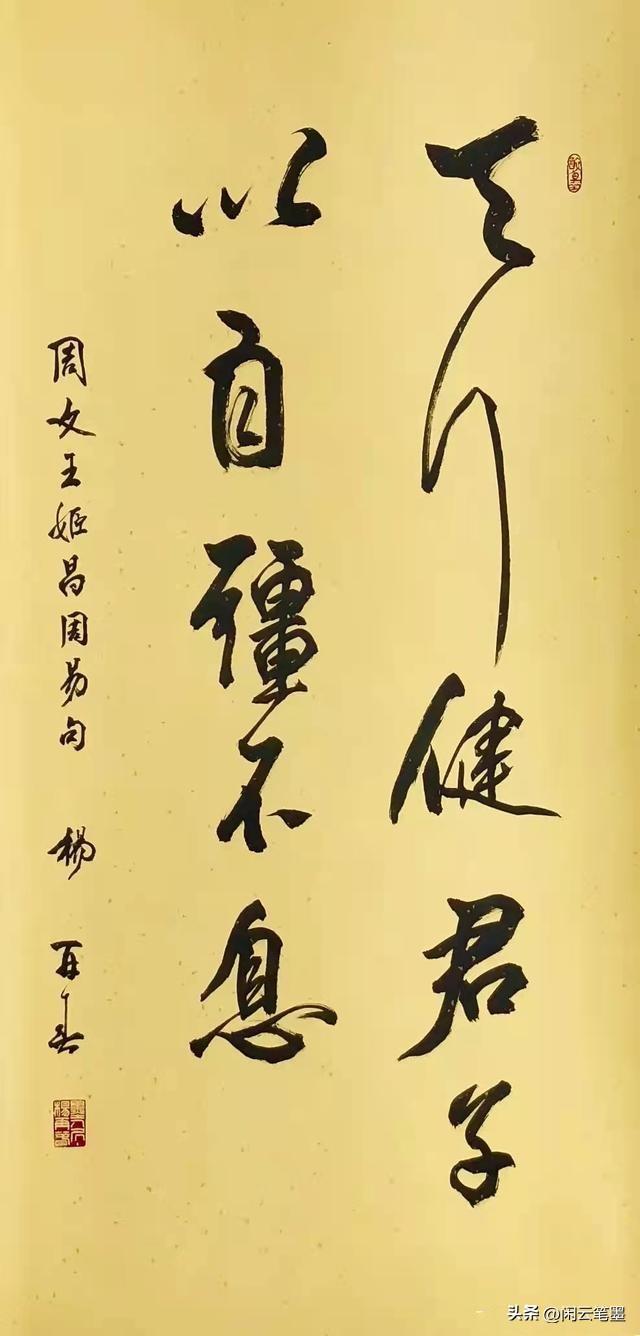 天行健君子
以自彊不息
周文王姬昌周易句 杨再春
头条 @闲云笔墨